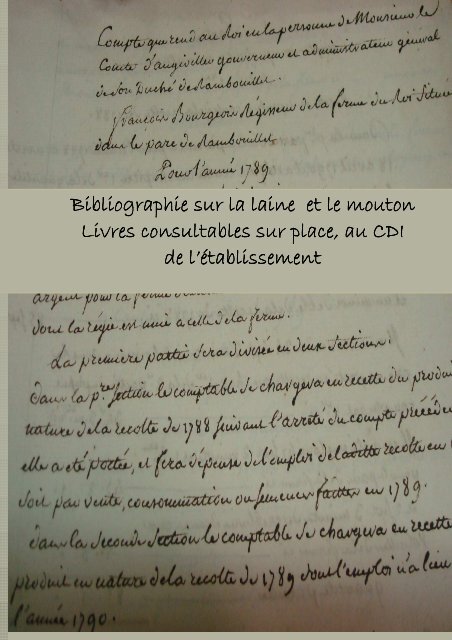 Compte que rend au Roi en la personne de Monsieur le
Comte d'angiviller gouverneur et administrateur général
de son Duché de Rambouillet.
François Bourgeois Régisseur de la ferme du Roi Située
dans le parc de Rambouillet
Pour l'année 1789
Bibliographie sur la laine et le mouton
Livres consultables sur place, au CDI
de l'établissement
argent pour la ferme
dont la régie est unie a celle de la ferme.
La premiere partie sera divisée en deux sections.
dans la p.re Section le comptable se chargera en recette du produit
nature de la recolte de 1788 suivant l'arreté du compte précéden
elle a été portée, et fera dépense de l'emploi de laditte recolte en
soit par vente, consommation ou semences faittes en 1789.
dans la seconde section le comptable se chargera en recette
produit en nature de la recolte de 1789 dont l'emploi n'a lieu
l'année 1790.